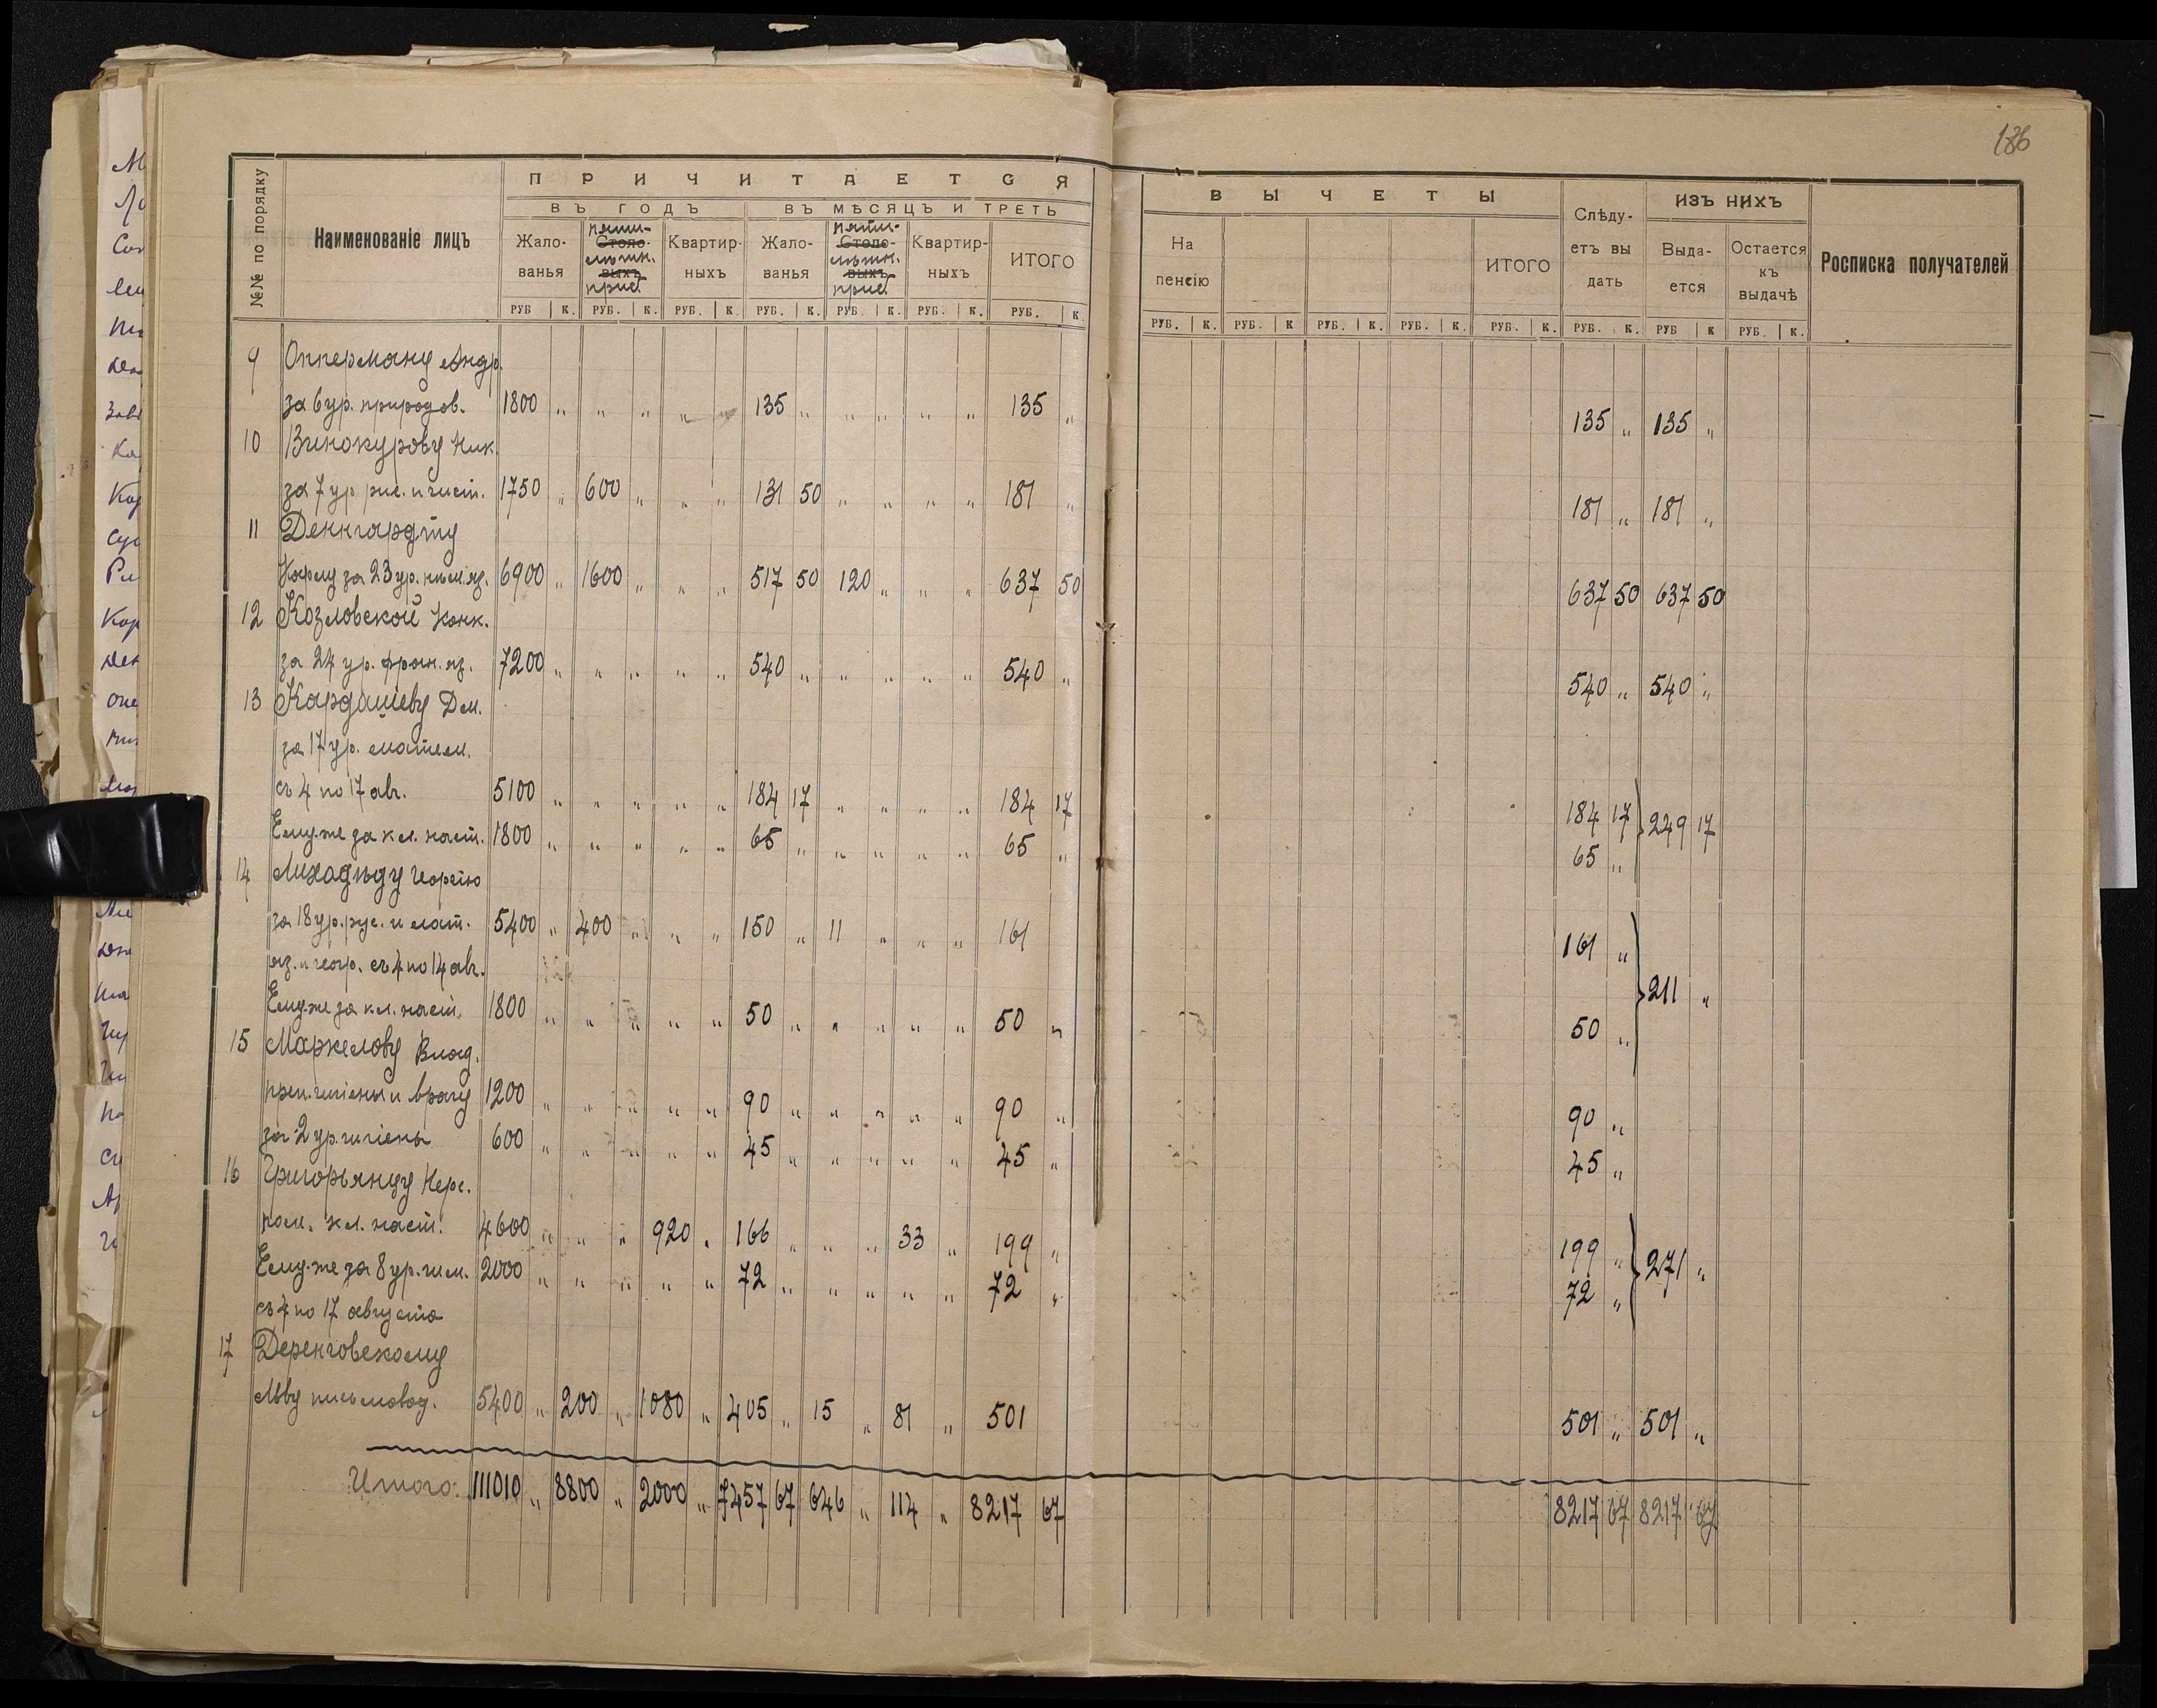 186
№№ по порядку
Наименованіе лицъ
ПРИЧИТАЕТСЯ
ВЪ ГОДЪ
ВЪ МѢСЯЦЪ И ТРЕТЬ
Жалованья
Столовыхъ
пяти-лѣтн. приб.
Квартирныхъ
Жалованья
Столовыхъ
пяти-лѣтн. приб.
Квартирныхъ
ИТОГО
РУБ К. РУБ. К. РУБ. К. РУБ. К. РУБ. К. РУБ. К. РУБ. К.
ВЫЧЕТЫ
На пенсію
ИТОГО
Слѣдуетъ вы дать
ИЗЪ НИХЪ
Выдается
Остается къ выдачѣ
Росписка получателей
РУБ. К. РУБ. К РУБ. К. РУБ. К. РУБ. К. РУБ. К. РУБ К РУБ. К.
9 Опперману Андр.
за 6 ур. природов. 1800 „ „ „ „ „ 135 „ „ „ „ „ 135 „ 135 „ 135 „
10 Винокурову Ник.
за 7 ур рис. и чист. 1750 „ 600 „ „ „ 131 50 „ „ „ „ 181 „ 181 „ 181 „
11 Деннгардту
Карлу за 23 ур. нѣм. яз. 6900 „ 1600 „ „ „ 517 50 120 „ „ „ 637 50 637 50 637 50
12 Козловской Конк.
за 24 ур. фран. яз. 7200 „ „ „ „ „ 540 „ „ „ „ „ 540 „ 540 „ 540 „
13 Кардашеву Дм.
за 17 ур. матем.
съ 4 по 17 авг. 5100 „ „ „ „ „ 184 17 „ „ „ „ 184 17 184 17 249 17
Ему-же за кл. наст. 1800 „ „ „ „ „ 65 „ „ „ „ „ 65 „ 65 „
14 Лихадзѣду Георгію
за 18 ур. рус. и лат. 5400 „ 400 „ „ „ 150 „ 11 „ „ „ 161 161 „
яз. и геогр. съ 4 по 14 авг. 211 „
Ему-же за кл. наст. 1800 „ „ „ „ „ 50 „ „ „ „ „ 50 „ 50 „
15 Маркелову Влад.
преп. гигіены и врачу 1200 „ „ „ „ „ 90 „ „ „ „ „ 90 „ 90 „
за 2 ур. гигіены 600 „ „ „ „ „ 45 „ „ „ „ „ 45 „ 45 „
16 Григорьянцу Нерс.
пом. кл. наст. 4600 „ „ „ 920 „ 166 „ „ „ 33 „ 199 „ 199 „ 271 „
Ему-же за 8 ур. гим. 2000 „ „ „ „ „ 72 „ „ „ „ „ 72 „ 72 „
съ 4 по 17 августа
17 Деренговскому
Льву письмовод. 5400 „ 200 „ 1080 „ 405 „ 15 „ 81 „ 501 501 „ 501 „
Итого: 111010 „ 8800 „ 2000 „ 7457 67 646 „ 114 „ 8217 67 8217 67 8217 67